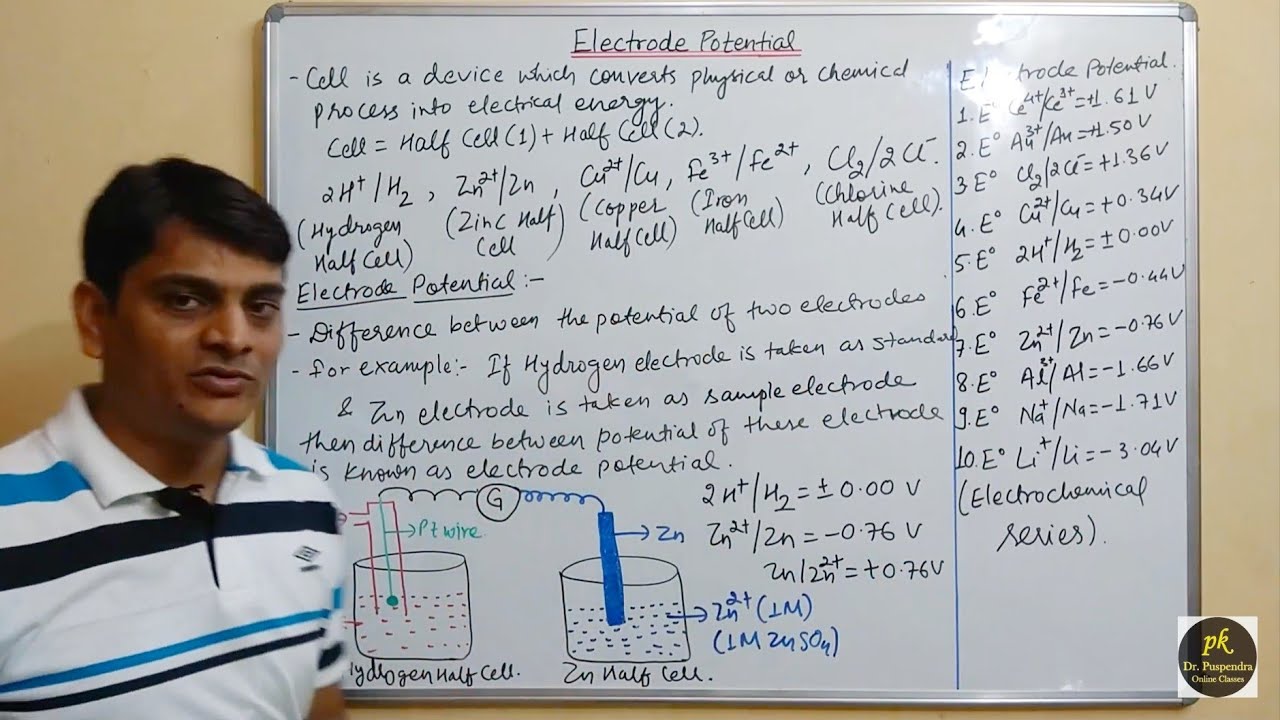 Electrode Potential
- Cell is a device which converts physical or chemical
process into electrical energy.
Cell = Half Cell (1) + Half Cell (2).
2H⁺/H₂ , Zn²⁺/Zn , Cu²⁺/Cu, Fe³⁺/Fe²⁺ , Cl₂/2Cl⁻.
(Hydrogen (Zinc Half (Copper (Iron (Chlorine
Half Cell) Cell) Half Cell) Half Cell) Half Cell).
Electrode Potential :-
- Difference between the potential of two electrodes
- for example:- If Hydrogen electrode is taken as standard
& Zn electrode is taken as sample electrode
then difference between potential of these electrode
is known as electrode potential.
G
Pt wire
Zn
2H⁺/H₂ = ± 0.00 V
Zn²⁺/Zn = -0.76 V
Zn/Zn²⁺ = +0.76V
Zn²⁺ (1M)
(1M ZnSO₄)
ydrogen Half Cell.
Zn Half Cell.
El trode Potential.
1. E° Ce⁴⁺/Ce³⁺ = +1.61 V
2. E° Au³⁺/Au = +1.50 V
3 E° Cl₂/2Cl⁻ = +1.36 V
4. E° Cu²⁺/Cu = +0.34V
5. E° 2H⁺/H₂ = ± 0.00V
6. E° Fe²⁺/Fe = -0.44V
7. E° Zn²⁺/Zn = -0.76 V
8. E° Al³⁺/Al = -1.66V
9. E° Na⁺/Na = -1.71V
10. E° Li⁺/Li = -3.04V
(Electrochemical
series).
pk
Dr. Puspendra
Online Classes